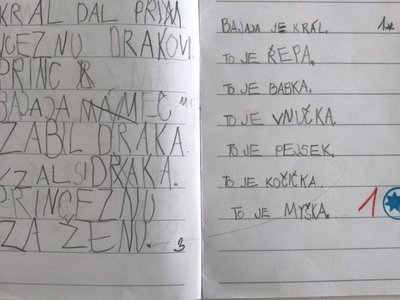 KRÁL DAL PRIM
INCEZNU DRAKOVI
PRINC
BAJAJA MÁMEČ MEČ
ZABIL DRAKA.
VZAL SI DRAKA.
PRINCEZNU
ZA ŽENU.
BAJAJA JE KRÁL. 1*
TO JE ŘEPA.
TO JE BABKA.
TO JE VNUČKA.
TO JE PEJSEK.
TO JE KOČIČKA.
TO JE MYŠKA. 1